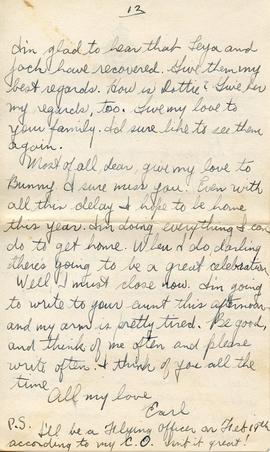 13
I'm glad to hear that Leya and
Jack have recovered. Give them my
best regards. How is Dottie? Give her
my regards, too. Give my love to
your family. I'd sure like to see them
again.
Most of all dear, give my love to
Bunny. I sure miss you. Even with
all this delay I hope to be home
this year. I'm doing everything I can
do to get home. When I do darling
there's going to be a great celebration.
Well I must close now. I'm going
to write to your aunt this afternoon
and my arm is pretty tired. Be good,
and think of me often and please
write often. I think of you all the
time.
All my love
Earl
P.S. I'll be a Flying officer on Feb 19th
according to my C.O. Ain't it great!